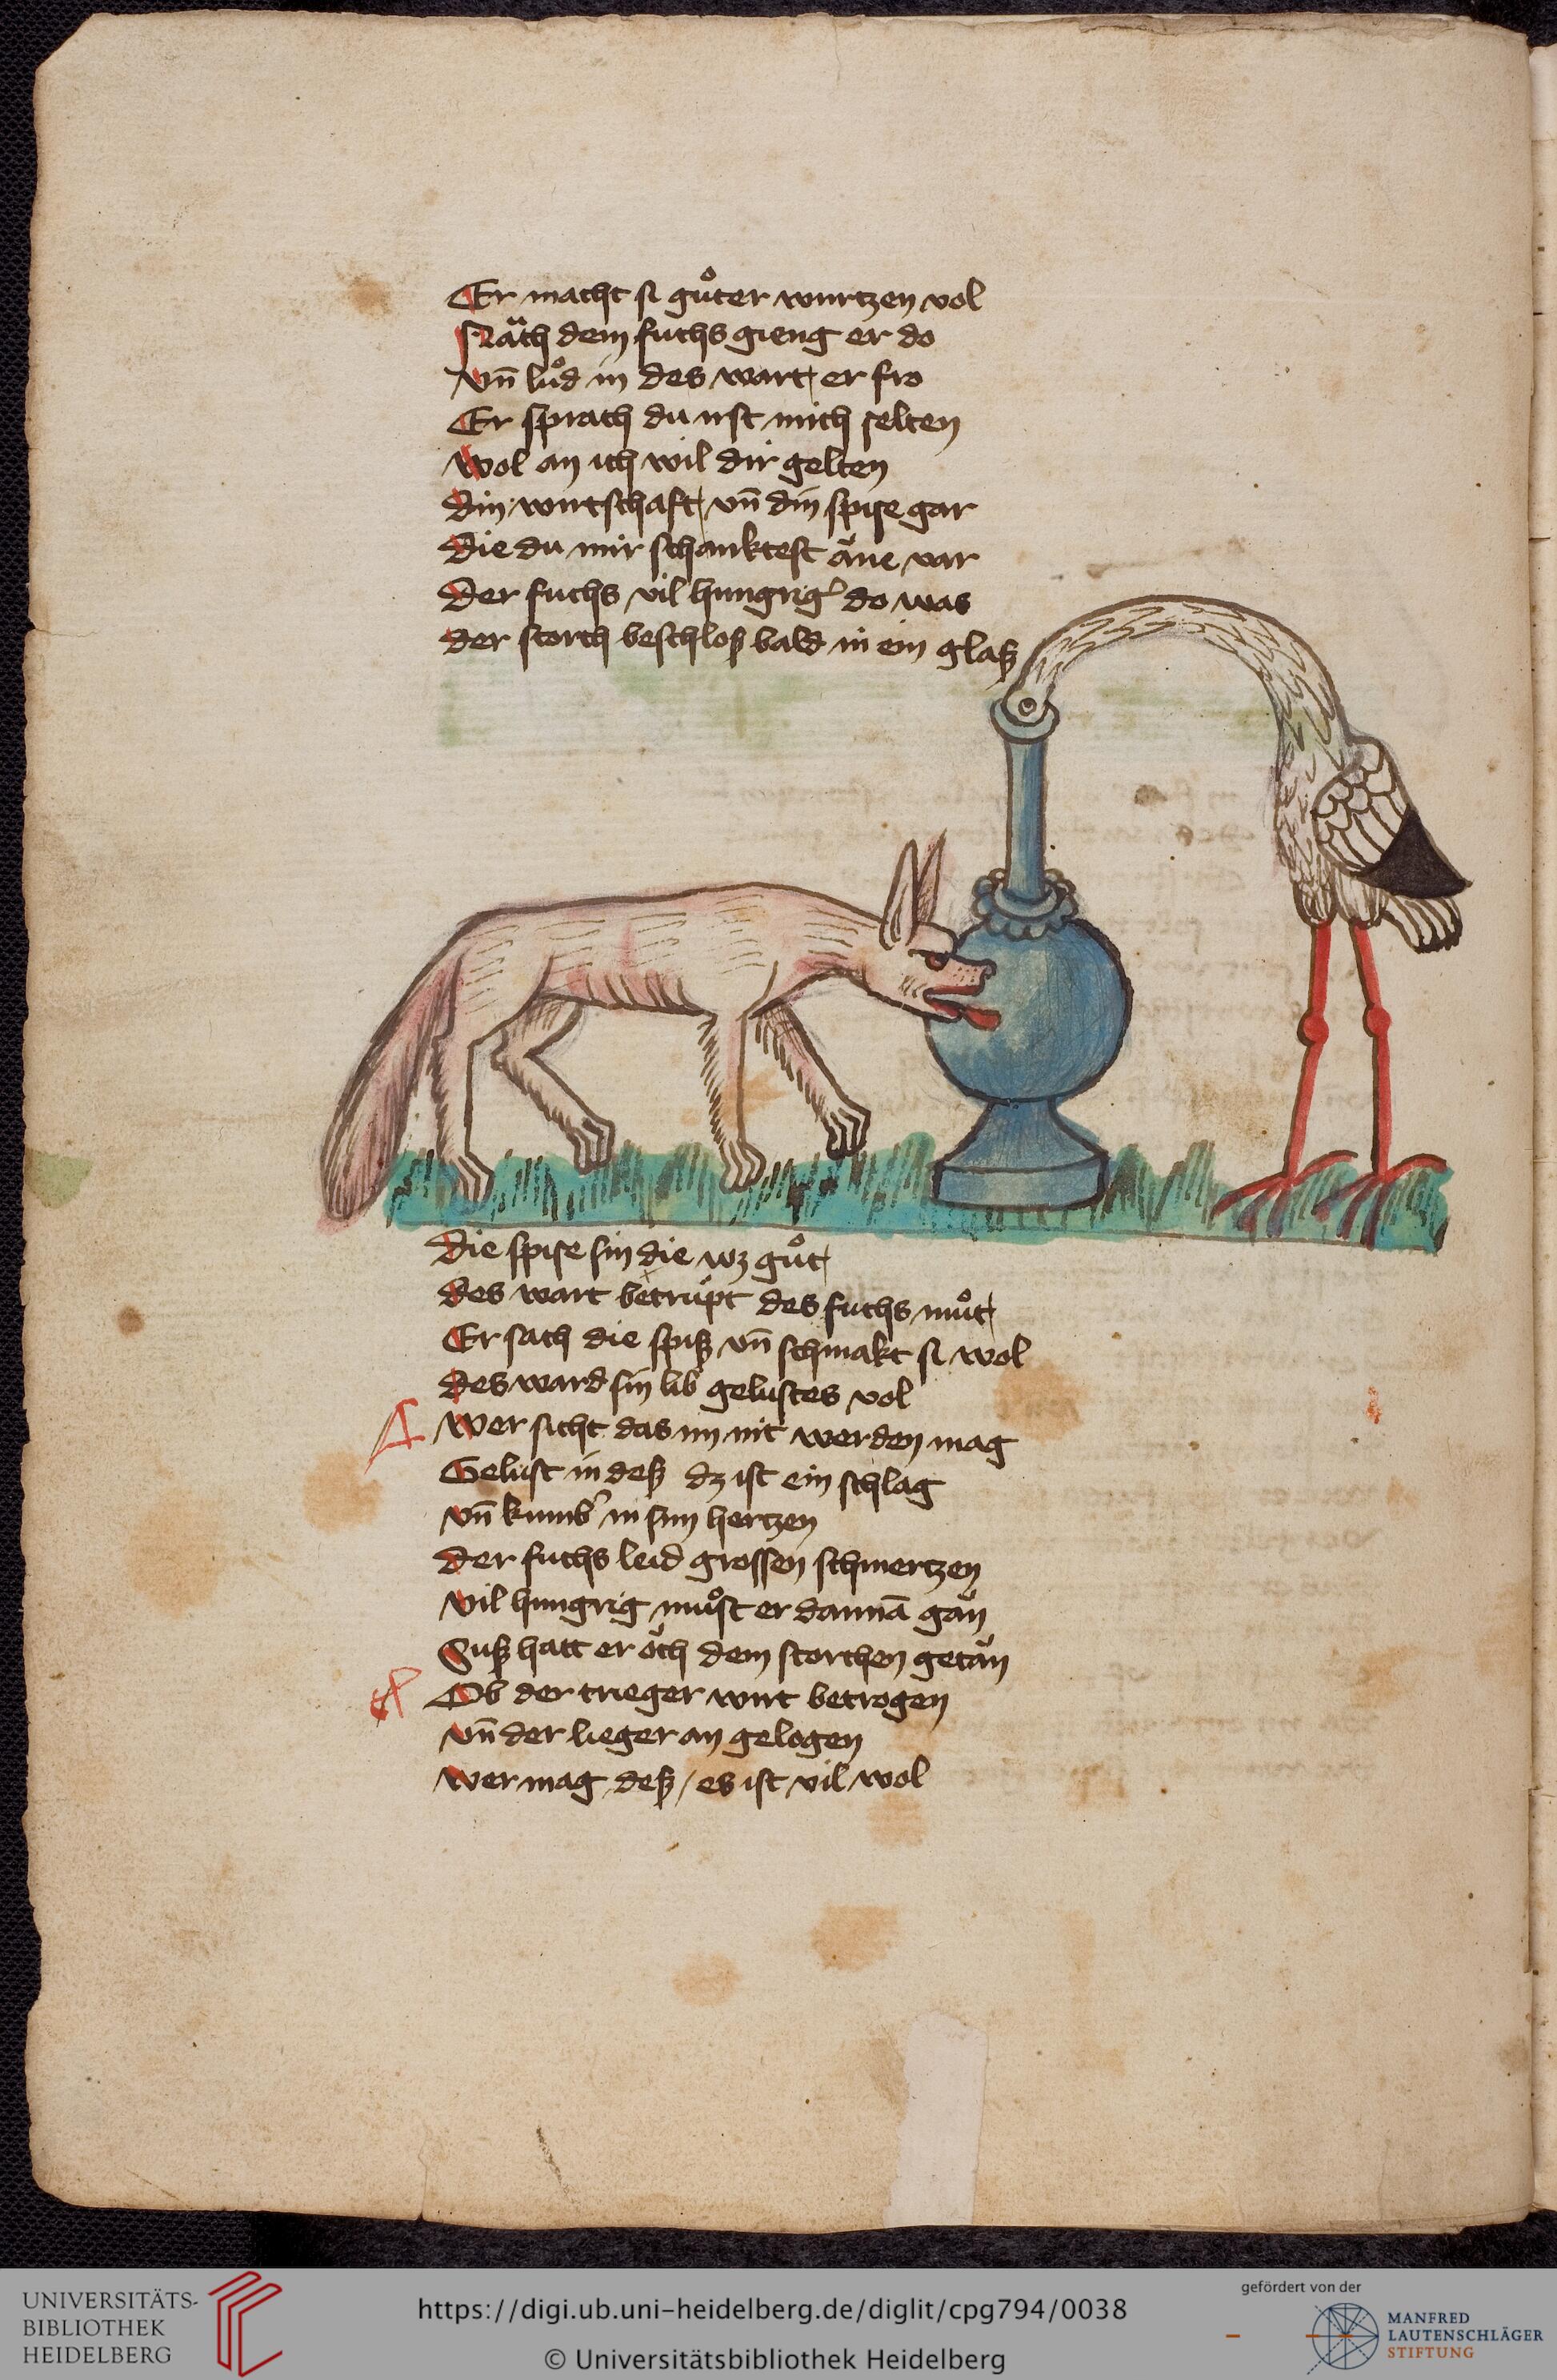 Er macht si gůter wurtzen vol
Näch dem fuchs gieng er do
vn̄ lůd in des wart er fro
Er sprach du ist mich selten
wol an ich wil dir gelten
din wirtschaft vn̄ din spise gar
die du mir schanktest äne var
Der fuchs vil hungrig' do was
der storch beschloß bald in ein glaß
Die spise sin die wz gůt
des wart betrüpt des fuchs můt
Er sach die spiß vn̄ schmakt si wol
des ward sin lib gelustes vol
wer sicht das im nit werden mag
Gelüst in deß dz ist ein schlag
vn̄ kumb' in sim hertzen
der fuchs leid grossen schmertzen
vil hungrig můst er dannā gän
Suß hatt er öch dem storchen getän
Ob der trieger wirt betrogen
vn̄ der lieger an gelogen
wer mag deß / es ist vil wol
UNIVERSITÄTS-
BIBLIOTHEK
HEIDELBERG
https://digi.ub.uni-heidelberg.de/diglit/cpg794/0038
© Universitätsbibliothek Heidelberg
gefördert von der
MANFRED
LAUTENSCHLÄGER
STIFTUNG